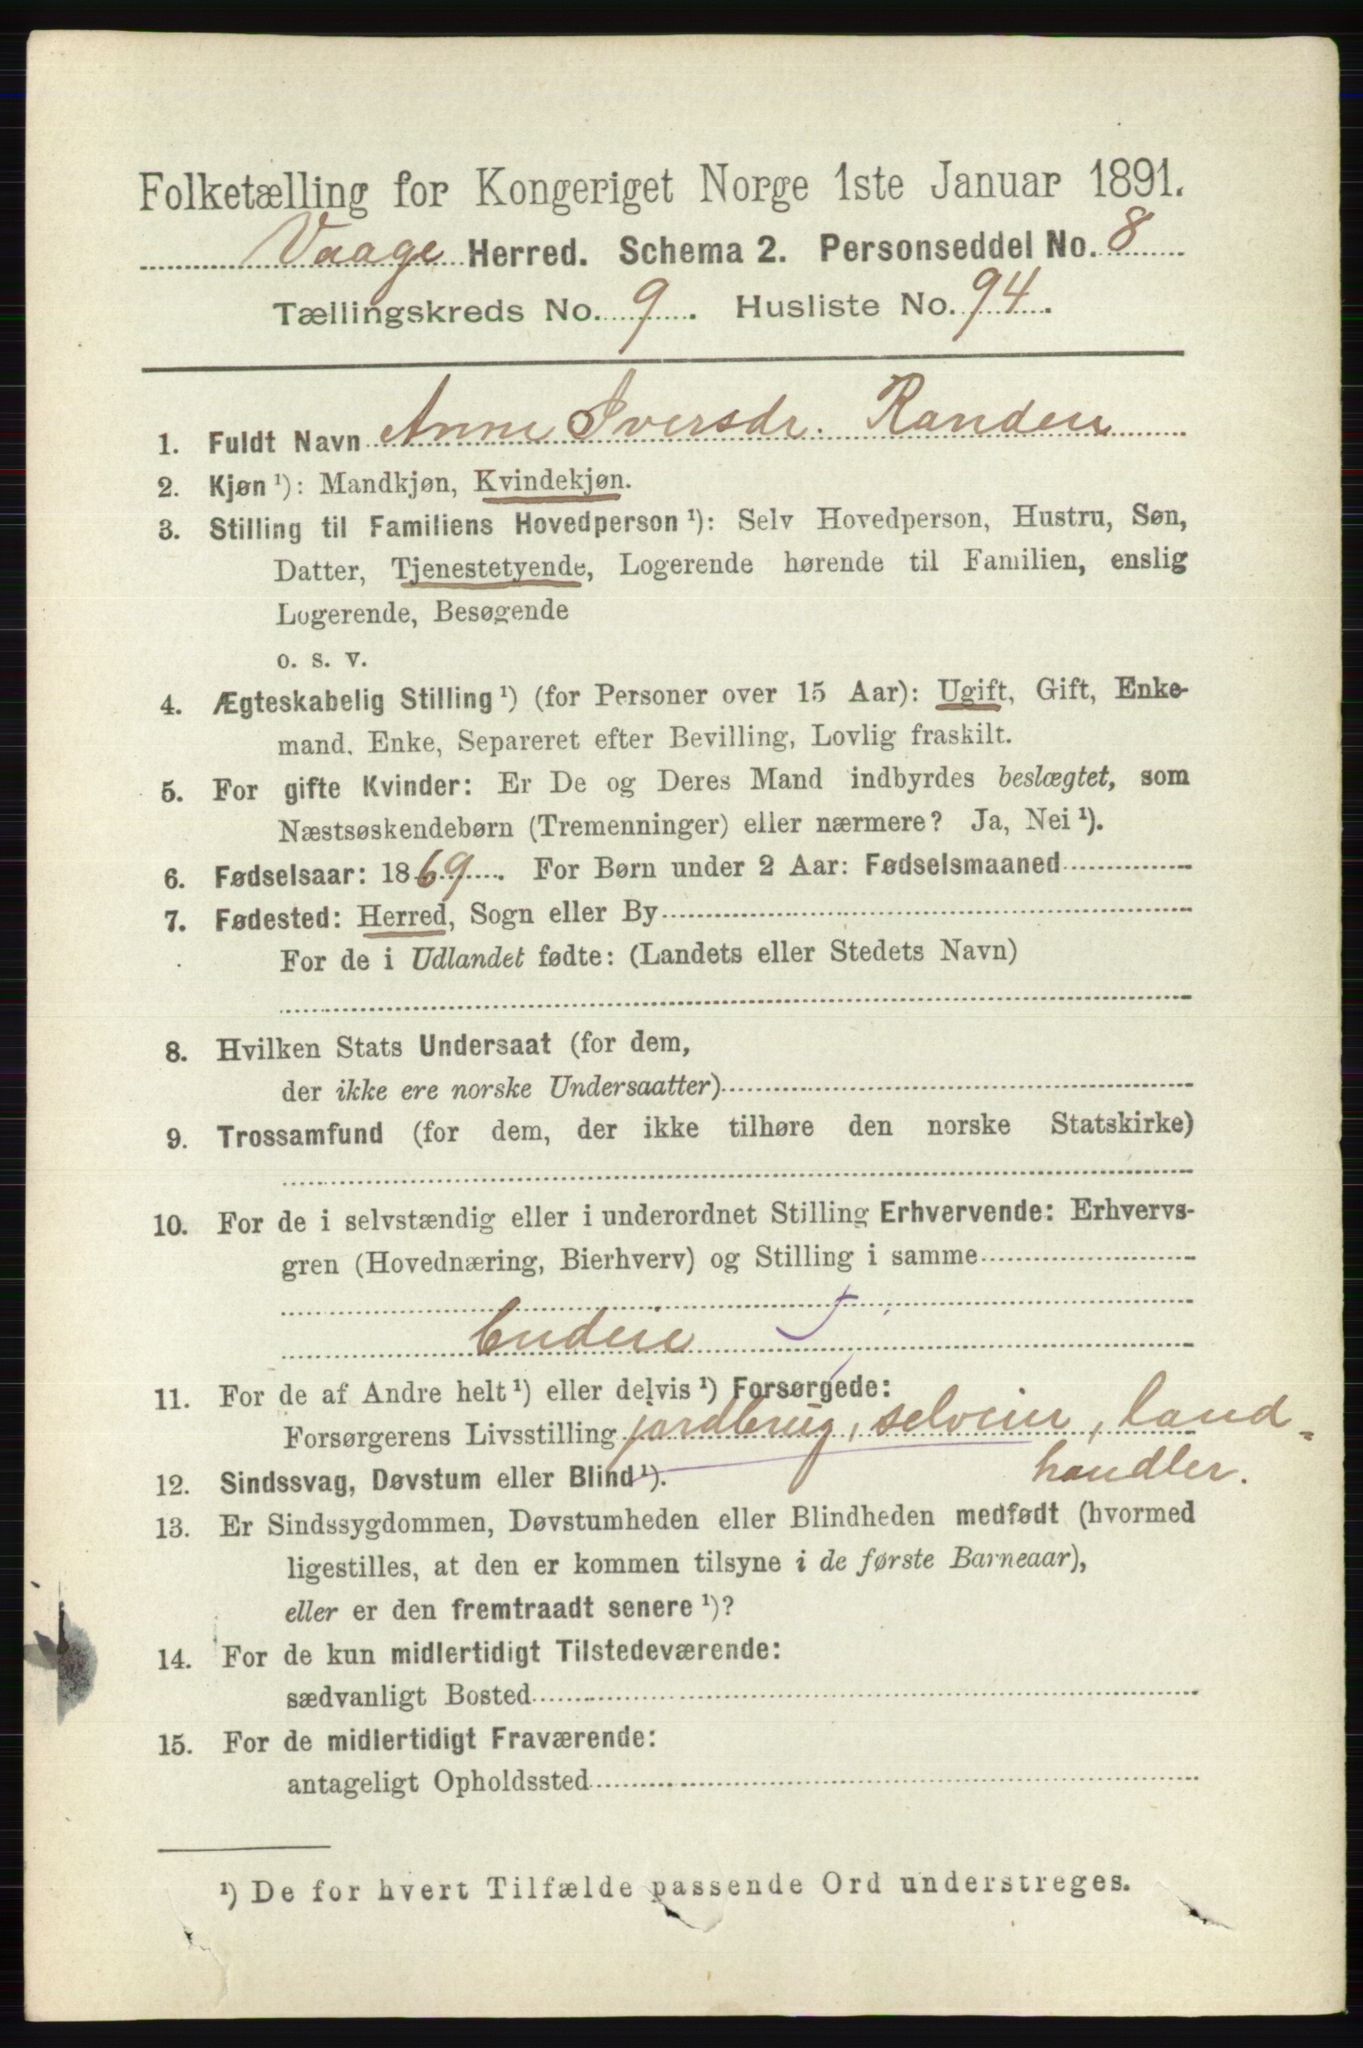 Folketælling for Kongeriget Norge 1ste Januar 1891.
Vaage Herred. Schema 2. Personseddel No. 8
Tællingskreds No. 9. Husliste No. 94.
1. Fuldt Navn Anne Iversdr. Randen
2. Kjøn ¹): Mandkjøn, Kvindekjøn.
3. Stilling til Familiens Hovedperson ¹): Selv Hovedperson, Hustru, Søn,
Datter, Tjenestetyende, Logerende hørende til Familien, enslig
Logerende, Besøgende
o. s. v.
4. Ægteskabelig Stilling ¹) (for Personer over 15 Aar): Ugift, Gift, Enke-
mand, Enke, Separeret efter Bevilling, Lovlig fraskilt.
5. For gifte Kvinder: Er De og Deres Mand indbyrdes beslægtet, som
Næstsøskendebørn (Tremenninger) eller nærmere? Ja, Nei ¹).
6. Fødselsaar: 1869. For Børn under 2 Aar: Fødselsmaaned
7. Fødested: Herred, Sogn eller By
For de i Udlandet fødte: (Landets eller Stedets Navn)
8. Hvilken Stats Undersaat (for dem,
der ikke ere norske Undersaatter)
9. Trossamfund (for dem, der ikke tilhøre den norske Statskirke)
10. For de i selvstændig eller i underordnet Stilling Erhvervende: Erhvervs-
gren (Hovednæring, Bierhverv) og Stilling i samme
11. For de af Andre helt ¹) eller delvis ¹) Forsørgede:
Forsørgerens Livsstilling jordbrug, selveier, land-
handler.
12. Sindssvag, Døvstum eller Blind ¹).
13. Er Sindssygdommen, Døvstumheden eller Blindheden medfødt (hvormed
ligestilles, at den er kommen tilsyne i de første Barneaar),
eller er den fremtraadt senere ¹)?
14. For de kun midlertidigt Tilstedeværende:
sædvanligt Bosted
15. For de midlertidigt Fraværende:
antageligt Opholdssted
¹) De for hvert Tilfælde passende Ord understreges.